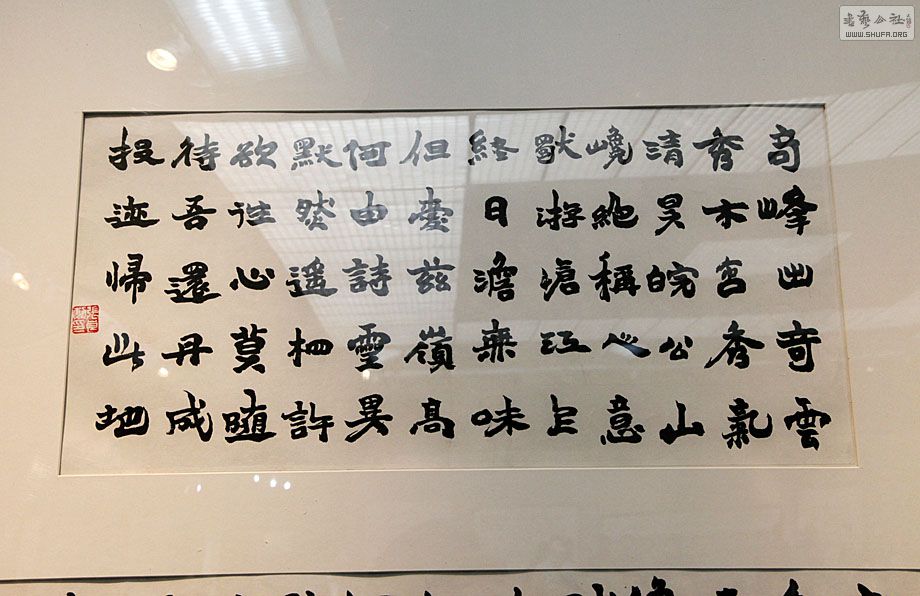 奇峰出奇雲
秀木含秀氣
清晏皖公山
巉絶稱人意
獨游滄江上
終日澹無味
但愛兹嶺高
何由詩靈異
默然遥相許
欲往心莫隨
待吾還丹成
投迹歸此地
書藝公社
WWW.SHUFA.ORG